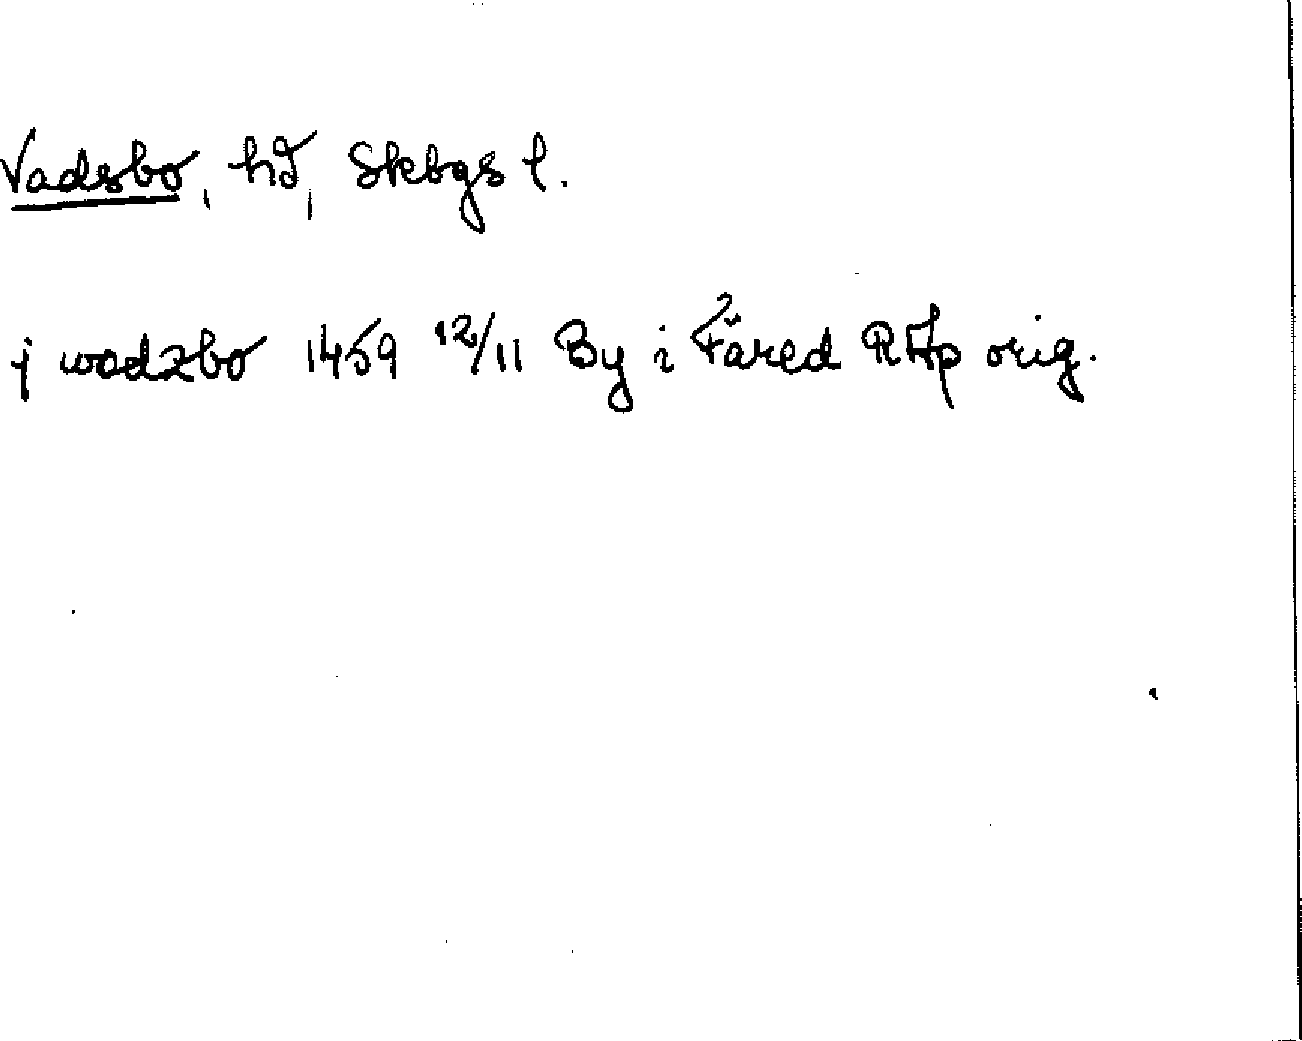 Vadsbo, hd, Skbgs l.
j wadzbo 1459 12/11 By i Färed RAp orig.